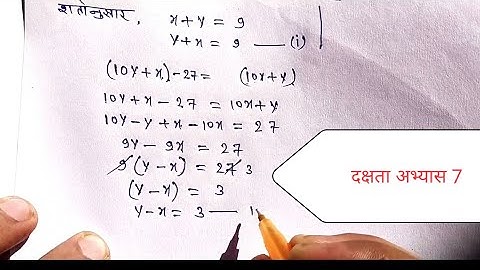 शर्तानुसार,
x+y = 9
y+x = 9 —— (i)
(10y+x)-27 = (10x+y)
10y+x - 27 = 10x+y
10y-y +x-10x = 27
9y - 9x = 27
9(y-x) = 27 3
(y-x) = 3
y-x = 3 ——
दक्षता अभ्यास 7